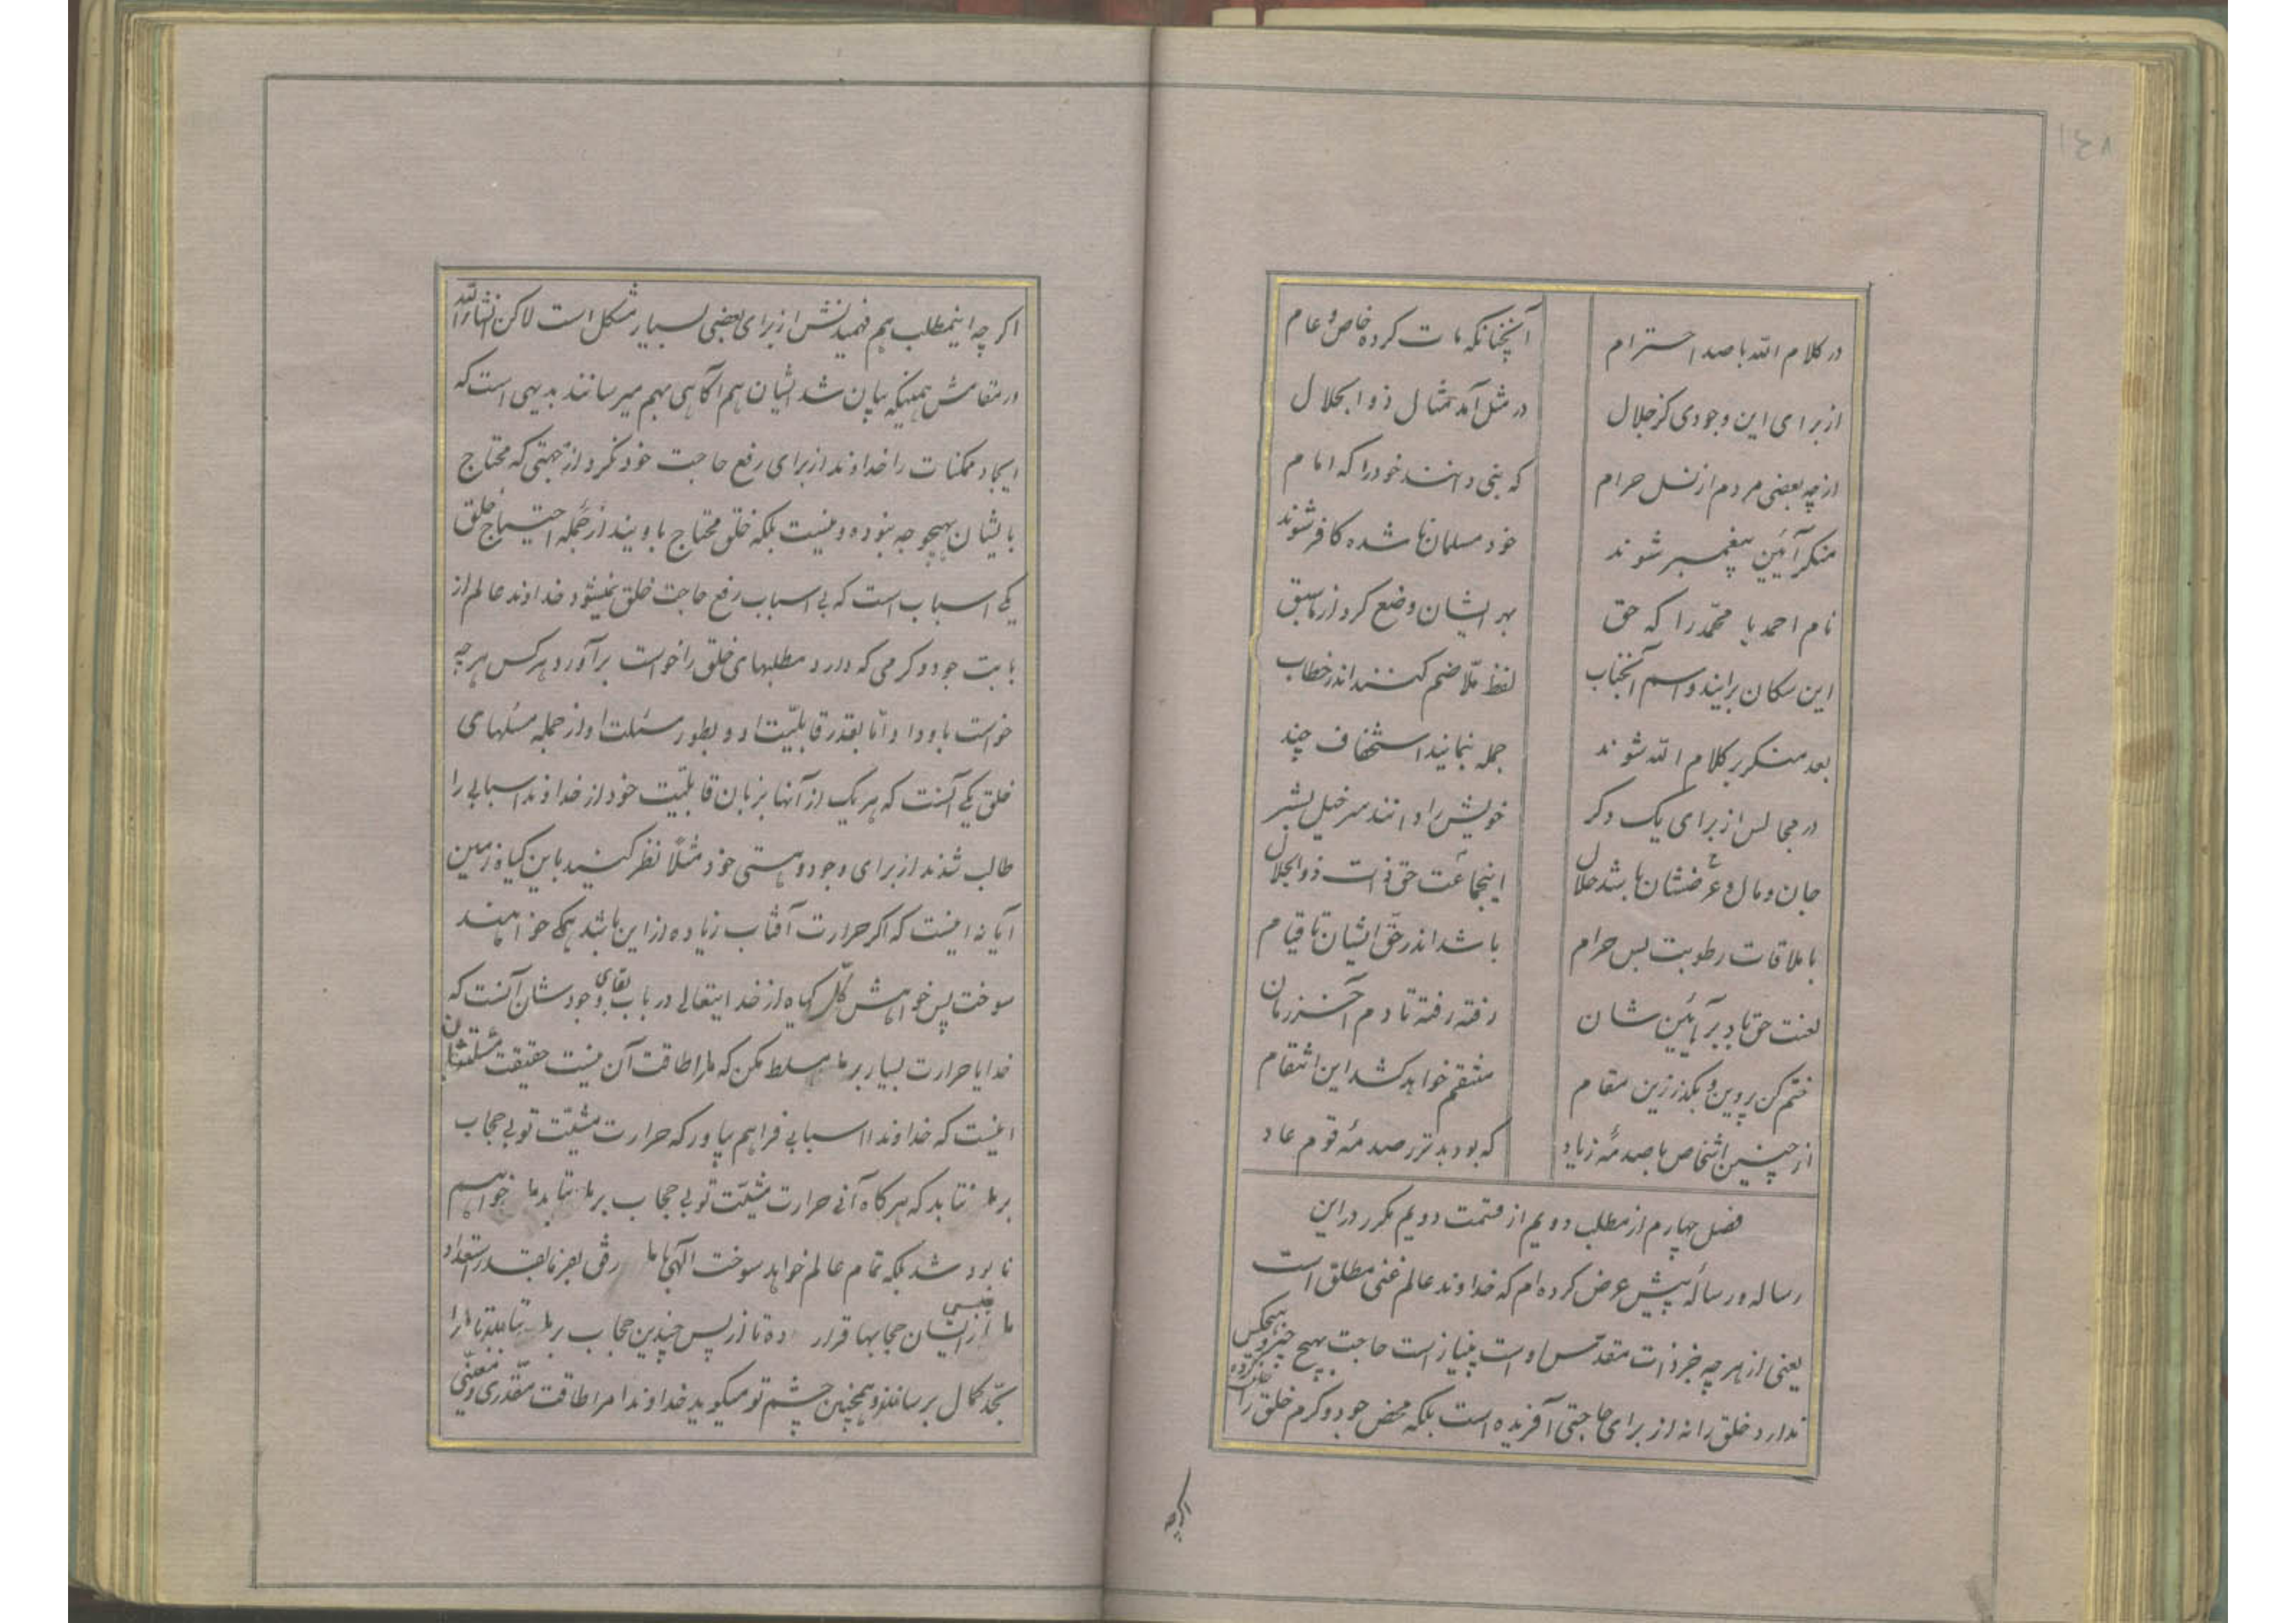 ۱۴۸
در کلام الله با صد احترام
آنچنانکه مات کرده خاص و عام
از برای این وجودی کز جلال
در مثل آمد تمثال ذوالجلال
از چه بعضی مردم از نسل حرام
که نبی دانند خود را که امام
منکر آئین پیغمبر شوند
خود مسلمان ها شده کافر شوند
نام احمد یا محمّد را که حق
بهر ایشان وضع کرد از ماسبق
این سکان برایند و اسم آنجناب
لفظ ملّا ضم کنند اندر خطاب
بعد منکر بر کلام الله شوند
جمله بنمایند استخفاف چند
در مجالس از برای یک دکر
خویش را دانند سرخیل بشر
جان و مال و عرضشان باشد حلال
اینجماعت حق ذات ذوالجلال
با ملاقات رطوبت بس حرام
باشد اندر حقّ ایشان تا قیام
لعنت حق باد بر آئین شان
رفته رفته تا دم آخر زمان
ختم کن پروین و بکذر زین مقام
منتقم خواهد کشد این انتقام
از چنین اشخاص با صدمهٔ زیاد
که بود بدتر ز صدمهٔ قوم عاد
فصل چهارم از مطلب دویم از قسمت دویم مکرر در این
رساله و رسالهٔ پیش عرض کرده ام که خداوند عالم غنی مطلق است
یعنی از هر چه جز ذات مقدّس اوست بینیاز است حاجت بهیچ چیز و هیچکس
ندارد خلق را نه از برای حاجتی آفریده است بلکه محض جود و کرم خلق را خلق کرده
اکرچه
اکر چه اینمطلب هم فهمیدنش از برای بعضی بسیار مشکل است لاکن انشاءالله
در مقامش همینکه بیان شد ایشان هم آکاهی بهم میرسانند بدیهی است که
ایجاد ممکنات را خداوند از برای رفع حاجت خود نکرد از جهتی که محتاج
بایشان بهیچوجه نبوده و نیست بلکه خلق محتاج باویند از جمله احتیاج خلق
یکی اسباب است که بی اسباب رفع حاجت خلق نمیشود خداوند عالم از
بابت جود و کرمی که دارد مطلبهای خلق را خواست برآورد هر کس هر چه
خواست باو داد امّا بقدر قابلیّت او و بطور مسئلت او از جمله مسئلهای
خلق یکی آنست که هر یک از آنها بزبان قابلیّت خود از خداوند اسبابی را
طالب شدند از برای وجود و هستی خود مثلاً نظر کنید باین کیاه زمین
آیا نه اینست که اکر حرارت آفتاب زیاده از این باشد همکی خواهند
سوخت پس خواهش کلّ کیاه از خدایتعالی در باب بقای وجودشان آنست که
خدایا حرارت بسیار بر ما مسلط مکن که ما را طاقت آن نیست حقیقت مسئلتشان
اینست که خداوندا اسبابی فراهم بیاور که حرارت مشیّت تو بی حجاب
بر ما نتابد که هر کاه آنی حرارت مشیّت تو بی حجاب بر ما بتابد ما خواهیم
نابود شد بلکه تمام عالم خواهد سوخت الهی با ما رفق بفرما بقدر استعداد
ما از ایشان حجابها قرار ده تا از پس چندین حجاب بر ما بتابند تا ما را
بحدّ کمال برسانند و همچنین چشم تو میکوید خداوندا مرا طاقت مقدّری و معیّنی